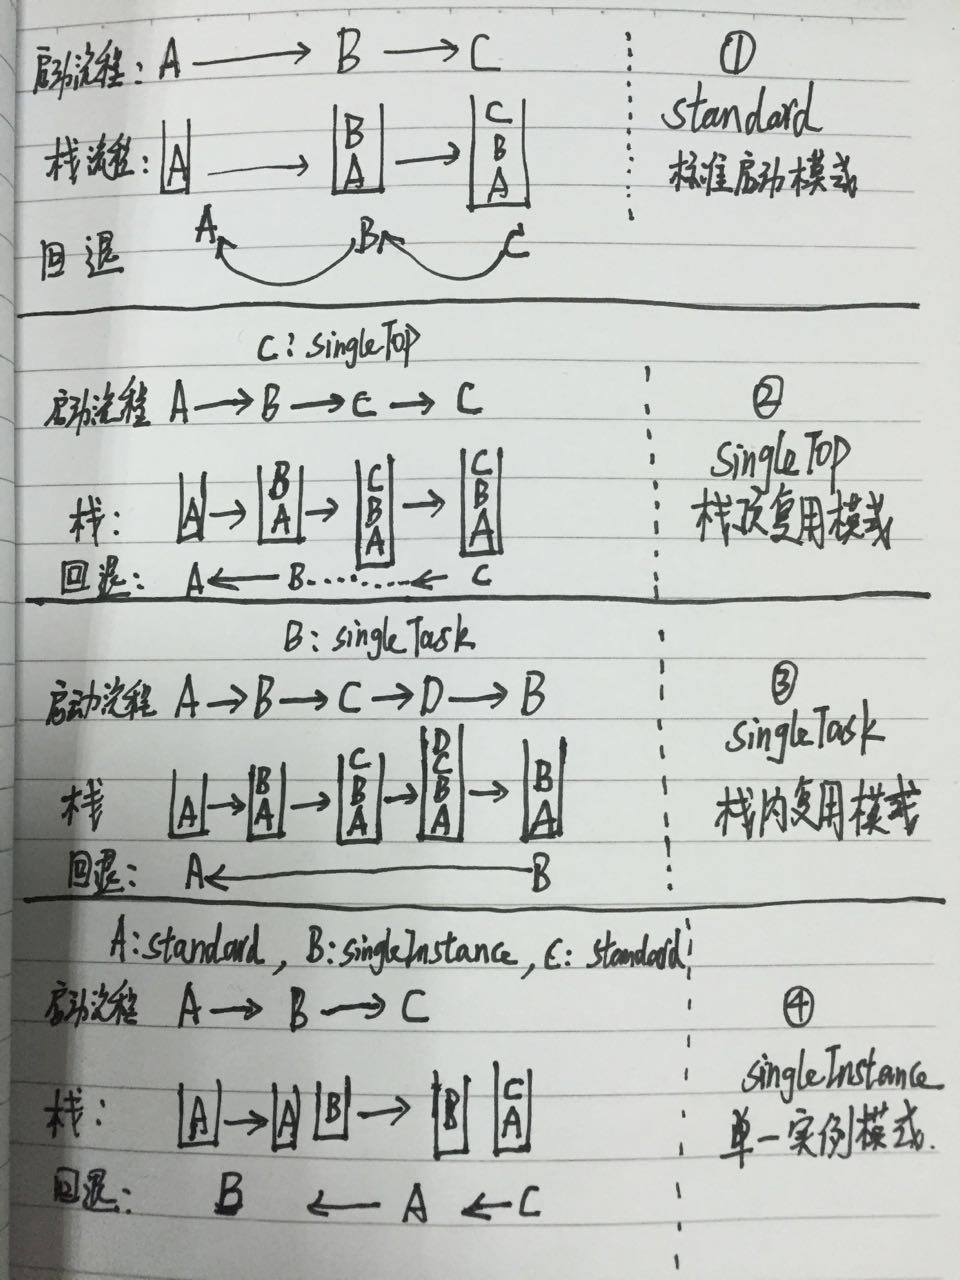 启动流程: A → B → C
栈流程: A → B A → C B A
回退 A B C
①
standard
标准启动模式
C: singleTop
启动流程 A → B → C → C
栈: A → B A → C B A → C B A
回退: A ← B ...... ← C
②
singleTop
栈顶复用模式
B: singleTask
启动流程 A → B → C → D → B
栈 A → B A → C B A → D C B A → B A
回退: A ← B
③
singleTask
栈内复用模式
A: standard, B: singleInstance, C: standard
启动流程 A → B → C
栈: A → A B → B C A
回退: B ← A ← C
④
singleInstance
单一实例模式.